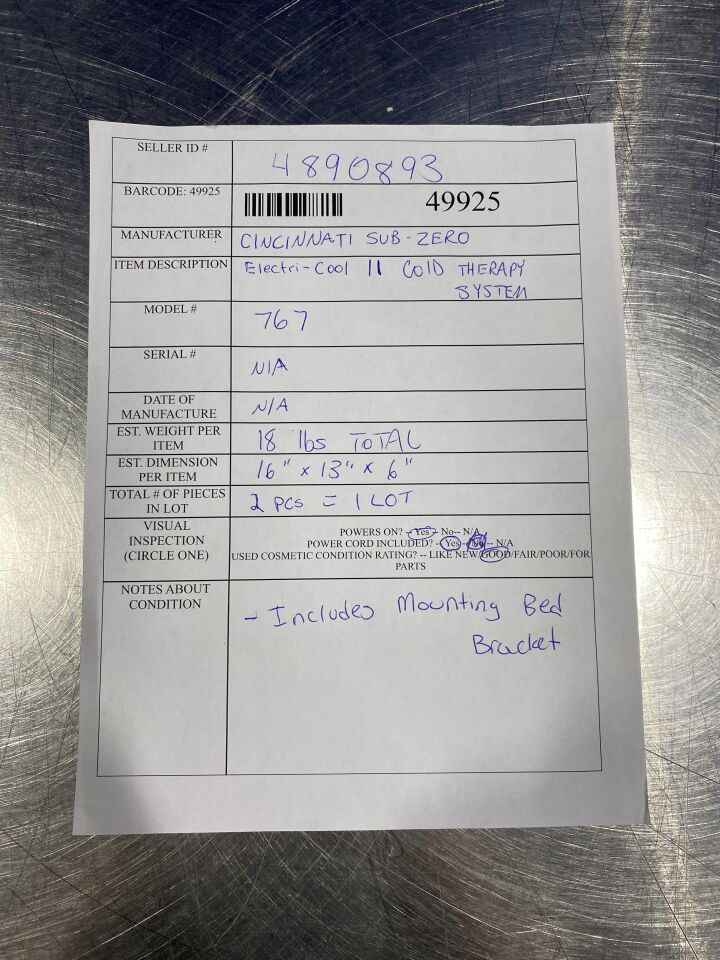 SELLER ID # 4890893
BARCODE: 49925 49925
MANUFACTURER CINCINNATI SUB-ZERO
ITEM DESCRIPTION Electri-Cool II COLD THERAPY
SYSTEM
MODEL # 767
SERIAL # N/A
DATE OF
MANUFACTURE N/A
EST. WEIGHT PER
ITEM 18 lbs TOTAL
EST. DIMENSION
PER ITEM 16" x 13" x 6"
TOTAL # OF PIECES
IN LOT 2 pcs = 1 LOT
VISUAL
INSPECTION
(CIRCLE ONE)
POWERS ON? -- Yes -- No-- N/A
POWER CORD INCLUDED? -- Yes -- No -- N/A
USED COSMETIC CONDITION RATING? -- LIKE NEW/GOOD/FAIR/POOR/FOR
PARTS
NOTES ABOUT
CONDITION
- Includes Mounting Bed
Bracket